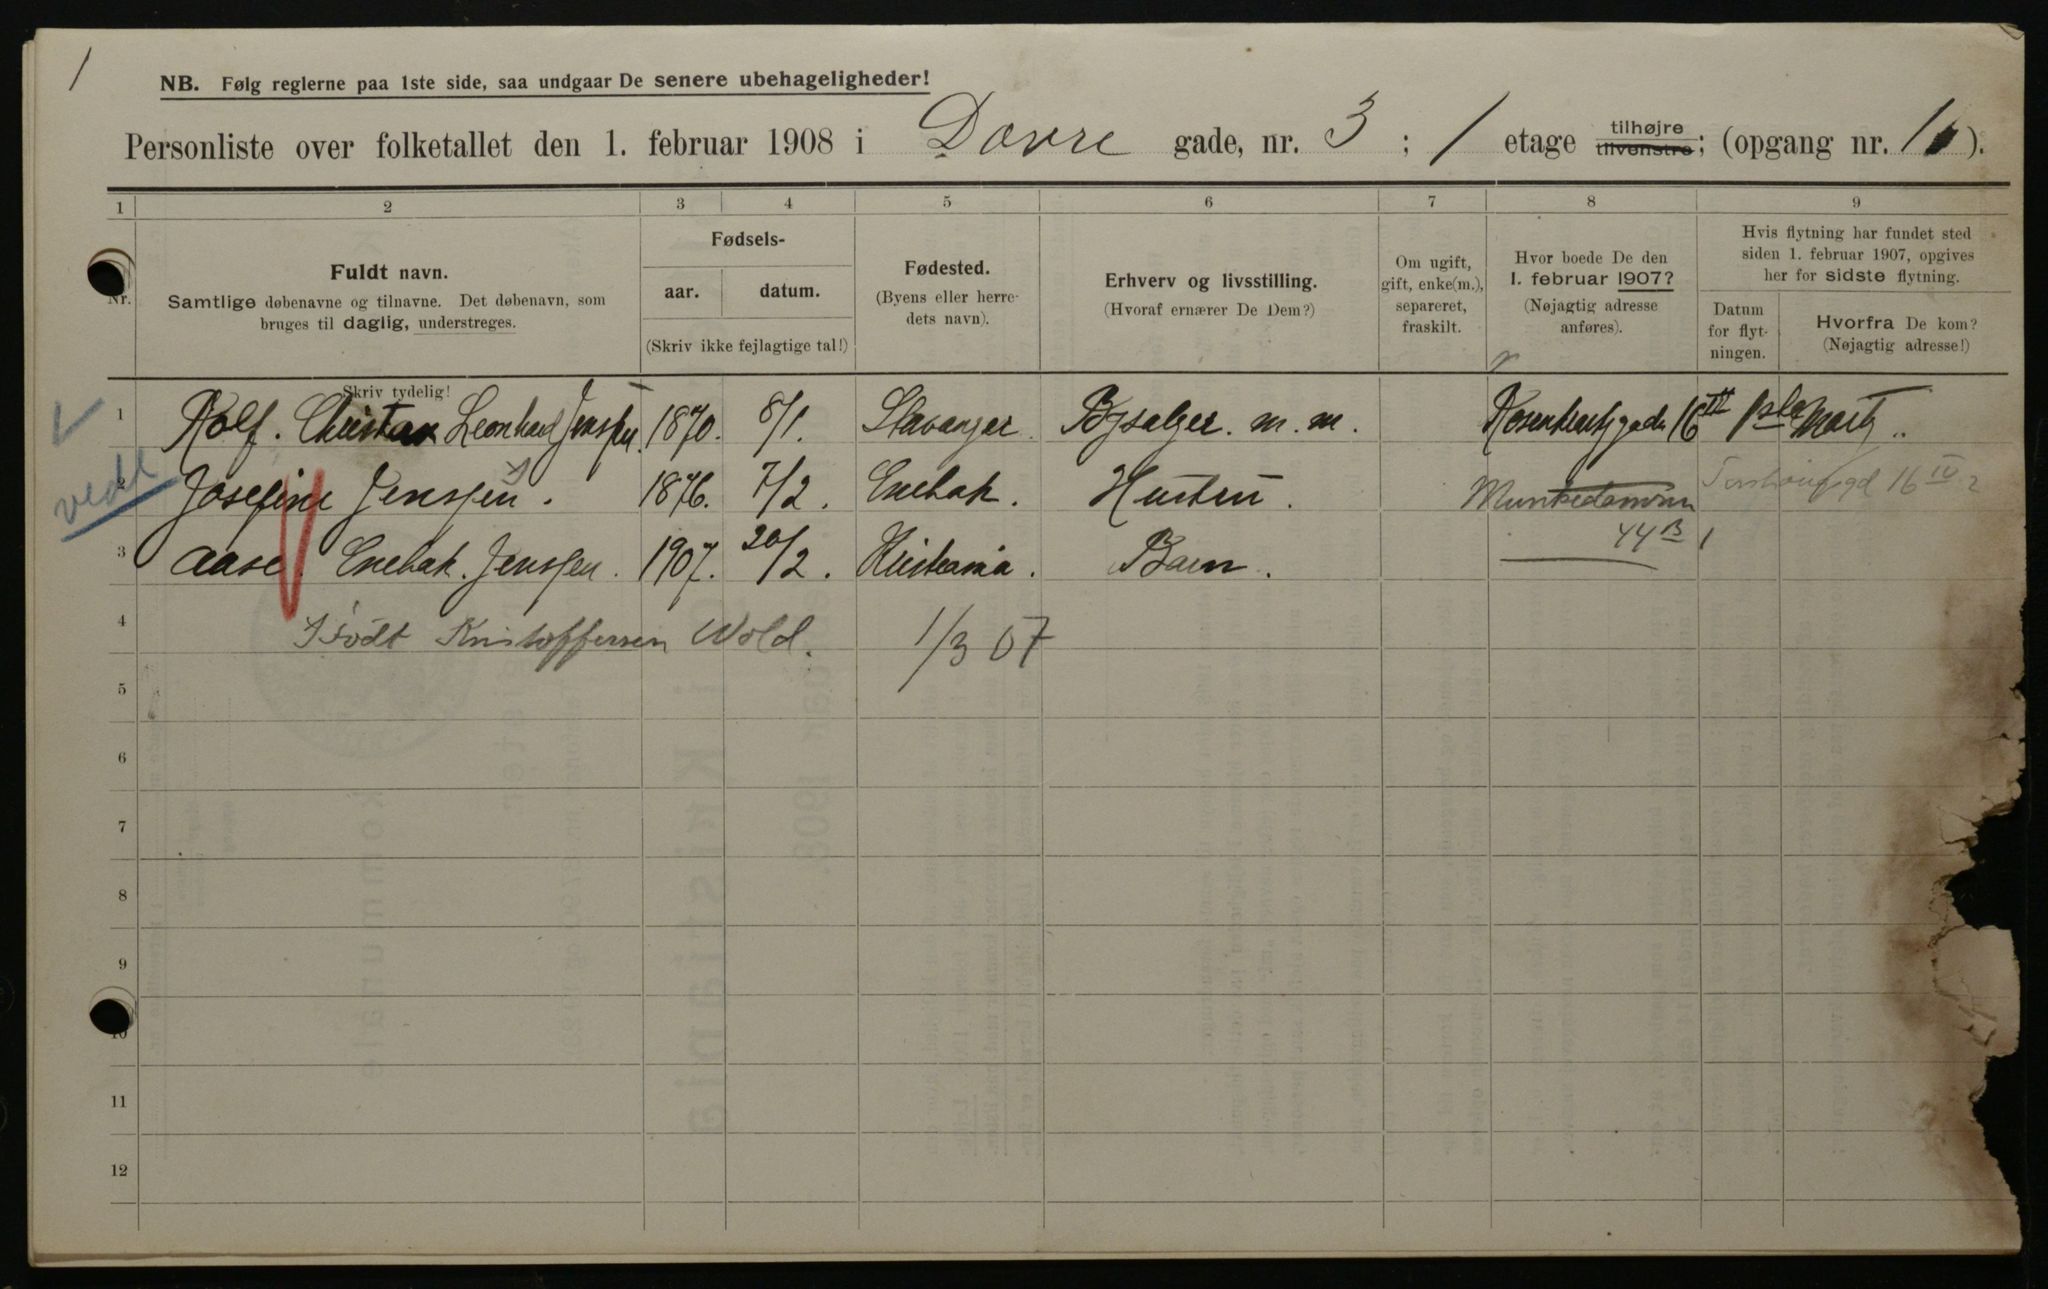 1
NB. Følg reglerne paa 1ste side, saa undgaar De senere ubehageligheder!
Personliste over folketallet den 1. februar 1908 i Dovre gade, nr. 3 ; 1 etage tilhøjre tilvenstre; (opgang nr. 1 ).
1 2 3 4 5 6 7 8 9
Nr.
Fuldt navn.
Samtlige døbenavne og tilnavne. Det døbenavn, som
bruges til daglig, understreges.
Skriv tydelig!
Fødsels-
aar. datum.
(Skriv ikke fejlagtige tal!)
Fødested.
(Byens eller herre-
dets navn).
Erhverv og livsstilling.
(Hvoraf ernærer De Dem?)
Om ugift,
gift, enke(m.),
separeret,
fraskilt.
Hvor boede De den
1. februar 1907?
(Nøjagtig adresse
anføres).
Hvis flytning har fundet sted
siden 1. februar 1907, opgives
her for sidste flytning.
Datum
for flyt-
ningen.
Hvorfra De kom?
(Nøjagtig adresse!)
1 Rolf. Christian Leonhard Jenssen. 1870. 8/1. Stavanger. Bysælger. m. m. 16 III 1ste Marts
vedl
2 Josefine Jenssen. 1876. 7/2. Enebak. Hustru. Munkedamsvn 16 IV 2
44 B 1
3 Aase. Enebak. Jenssen. 1907. 20/2. Kristiania. Barn.
4 Født Kristoffersen Wold. 1/3 07
5
6
7
8
9
10
11
12